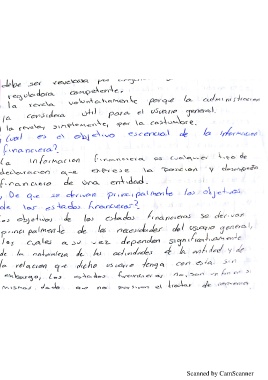 debe ser revelada por
reguladora competente.
la revela voluntariamente porque la administración
la considera útil para el usuario general.
la revela, simplemente, por la costumbre.
¿Cual es el objetivo escencial de la información
financiera?
La información financiera es cualquier tipo de
declaración que exprese la posición y desempeño
financiero de una entidad.
¿De que se derivan principalmente los objetivos
de los estados financieros?
Los objetivos de los estados financieros se derivan
principalmente de las necesidades del usuario general,
los cuales a su vez dependen significativamente
de la naturaleza de las actividades de la entidad y de
la relación que dicho usuario tenga con esta. sin
embargo, Los estados financieros no son
mismos, dado que no
Scanned by CamScanner